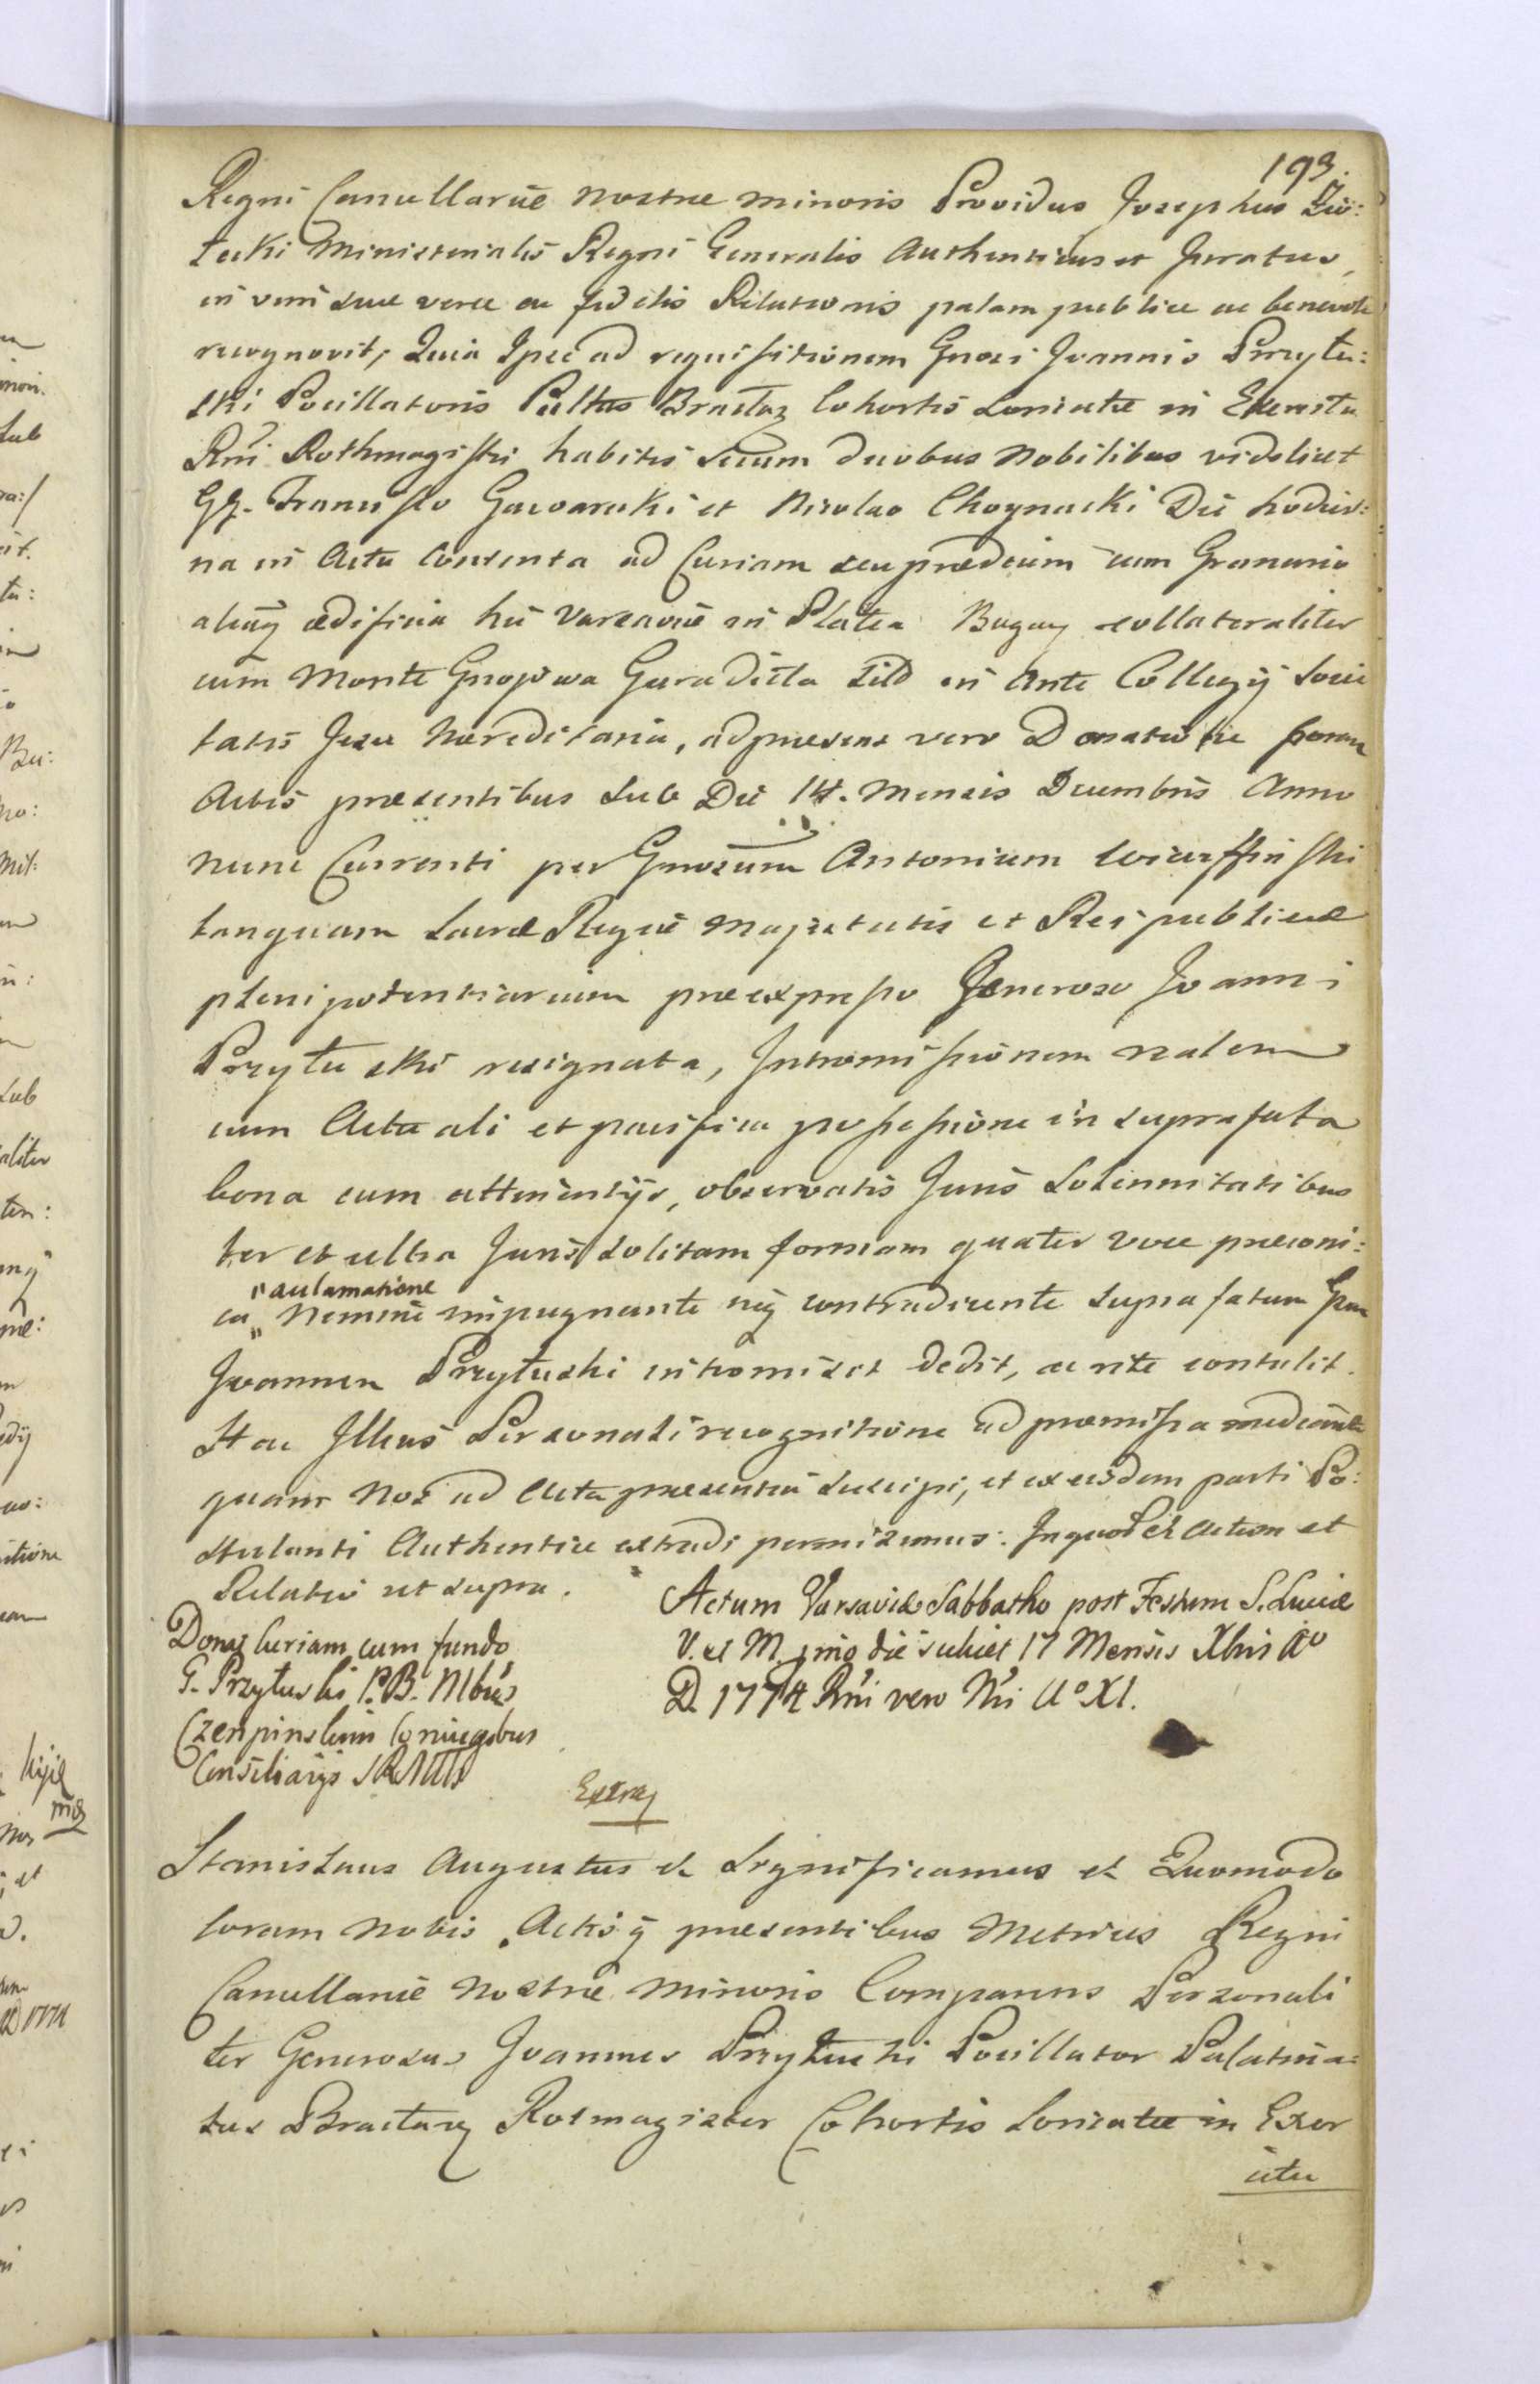 193.
Regni Cancellariæ nostræ minoris Providus Josephus
Ministerialis Regni Generalis Authenticus et Juratus,
in vim suæ veræ ac fidelis Relationis palam publice ac benevole
recognovit, Quia Ipse ad requisitionem Gnosi Joannis Przyłu:
ski Pocillatoris Pltus Bracłaz Cohortis Loricatæ in Exercitu
Rni Rothmagistri habitis secum duobus Nobilibus videlicet
GG. Francisco Gawarecki et Nicolao Choynacki Die hodier:
na in Actu Contenta ad Curiam seu prædium cum Granario
aliaq ædificia hic Varsaviæ in Platea Bugay collateraliter
cum Monte Gnoiowa Gura dicta sita in Ante Collegij Socie
tatis Jesu hæreditaria, ad præsens vero Donatione coram
Actis præsentibus sub Die 14. Mensis Decembris Anno
nunc Currenti per Gnosum Antonium
tanquam Sacræ Regiæ Majestatis et Reipublicæ
plenipotentiarium præexpresso Generoso Joanni
Przyłuski resignata, Intromissionem realem
cum Actuali et pacifica possessione in suprafata
bona cum attinentijs, observatis Juris Solennitatibus
ter et ultra Juris solitam formam quater voce præconi:
ca "acclamatione" Nemine impugnante neq contradicente supra fatum Gsum
Joannem Przyłuski intromisit dedit, ac rite contulit.
Hac Illius Personali recognitione ad præmissa mediante
quam Nos ad Acta præsentia suscipi, et ex eisdem parti Po:
stulanti Authentice extradi permisimus. In quorum Actum et
Relatio ut supra. Actum Varsaviæ Sabbatho post Festum S. Luciæ
V. et M. pmo die scilicet 17 Mensis Xbris Ao
D. 1774 Rni vero Nri Ao XI.
Donaõ Curiam cum fundo
G. Przyłuski P.B. Mbus
Czenpinskim Coniugibus
Consiliarijs SRMttis
Extraq
Stanislaus Augustus et Significamus et Quomodo
Coram Nobis Actisq præsentibus Metrices Regni
Cancellariæ Nostræ Minoris Comparens Personali
ter Generosus Joannes Przyłuski Pocillator Palatina:
tus Bracłaz Rotmagister Cohortis Loricatæ in Exer
citu